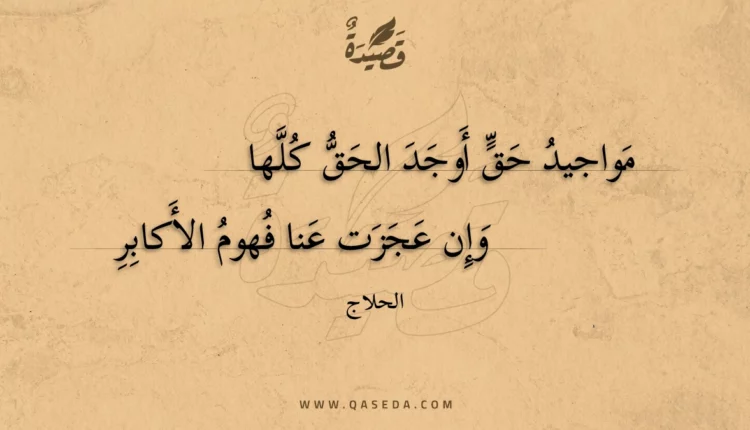 قَصِيدَةٌ
مَواجيدُ حَقٍّ أَوجَدَ الحَقُّ كُلَّها
وَإِن عَجَزَت عَنا فُهومُ الأَكابِرِ
الحلاج
WWW.QASEDA.COM